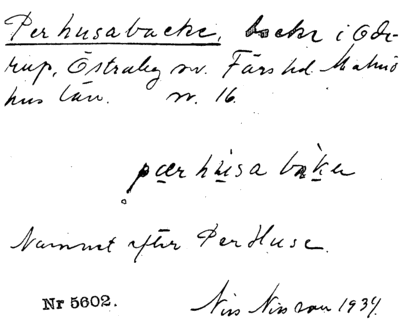 Perhusabacke, backe i Öde-
rup, Östraby sn. Färs hd. Malmö
hus län. nr. 16.
pærhusa baker
Namnet efter Per Huse.
Nr 5602.
Nils Nilsson 1934.